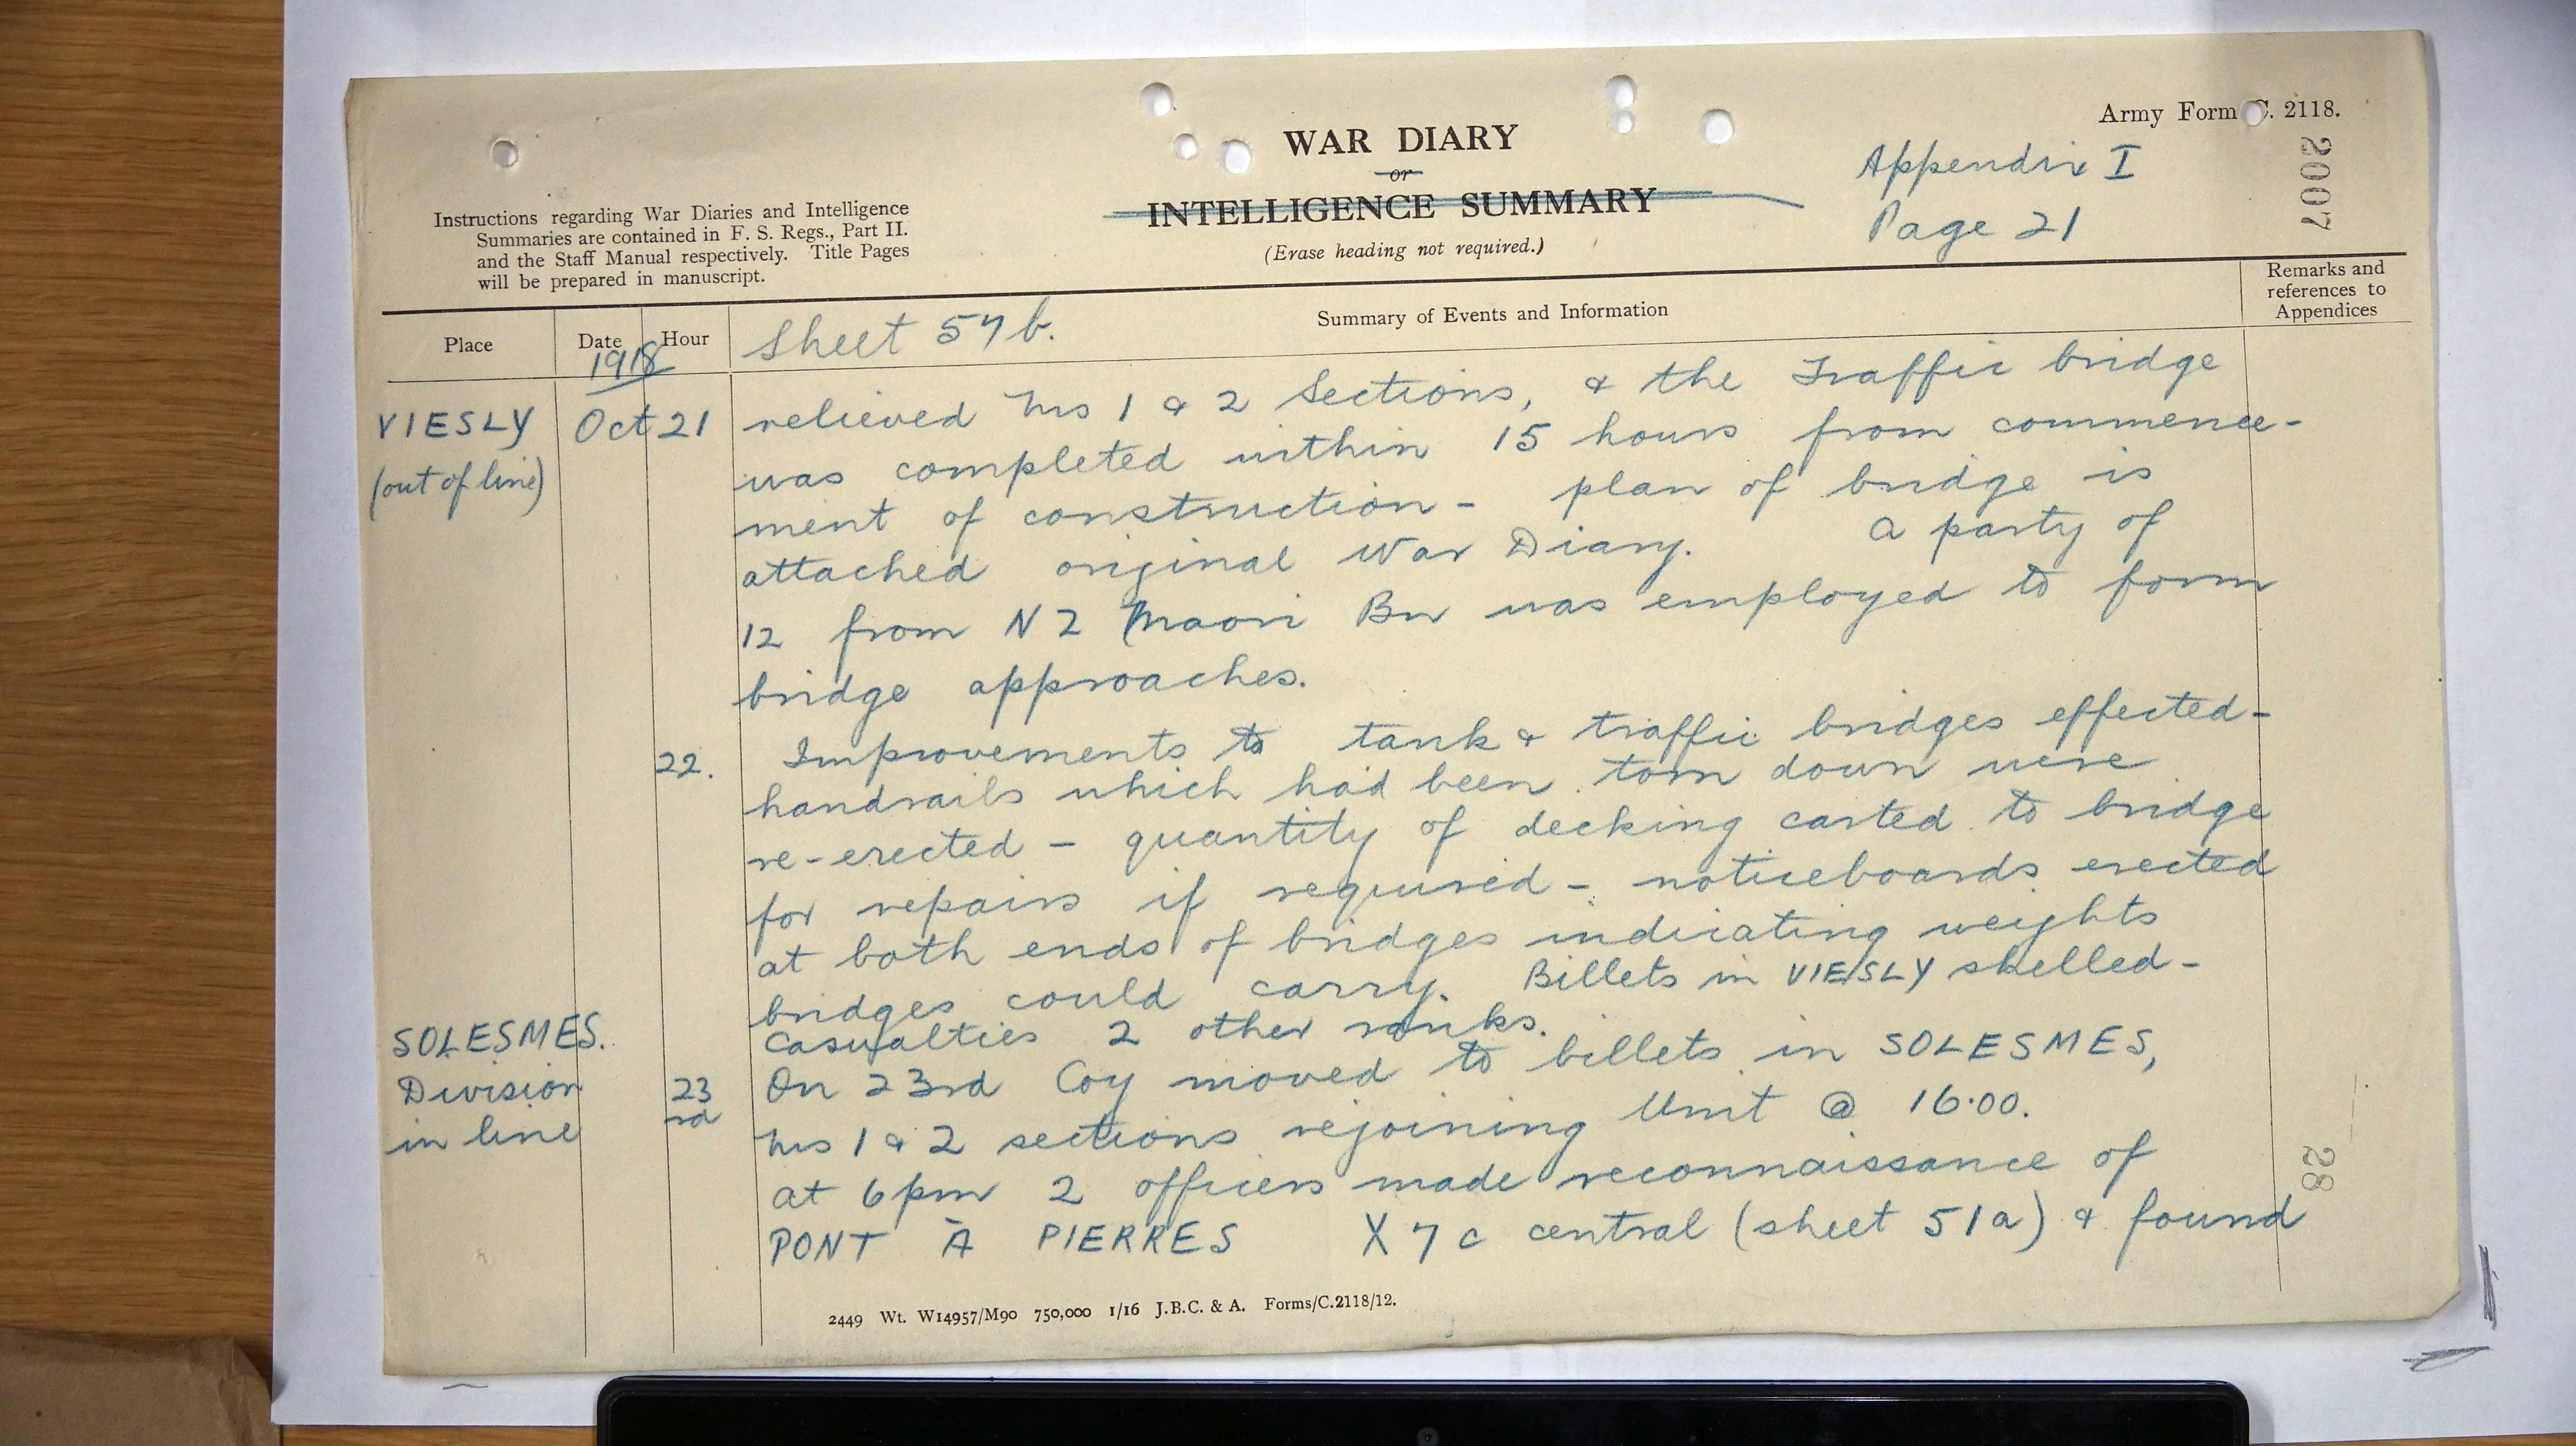 Army Form C. 2118.
WAR DIARY
or
INTELLIGENCE SUMMARY
(Erase heading not required.)
Appendix I
Page 21
2007
Instructions regarding War Diaries and Intelligence
Summaries are contained in F. S. Regs., Part II.
and the Staff Manual respectively. Title Pages
will be prepared in manuscript.
Place
Date
Hour
Summary of Events and Information
Remarks and
references to
Appendices
1918
Sheet 57b.
VIESLY
(out of line)
Oct 21
relieved Nos 1 & 2 Sections, & the Traffic bridge
was completed within 15 hours from commence-
ment of construction - plan of bridge is
attached original War Diary. A party of
12 from NZ Maori Bn was employed to form
bridge approaches.
22.
Improvements to tank & traffic bridges effected -
handrails which had been torn down were
re-erected - quantity of decking carted to bridge
for repairs if required - noticeboards erected
at both ends of bridges indicating weights
bridges could carry. Billets in VIESLY shelled -
Casualties 2 other ranks.
SOLESMES.
Division
in line
23
rd
On 23rd Coy moved to billets in SOLESMES,
Nos 1 & 2 sections rejoining Unit @ 16.00.
at 6pm 2 officers made reconnaissance of
PONT À PIERRES X 7 c central (sheet 51a) & found
28
2449 Wt. W14957/M90 750,000 1/16 J.B.C. & A. Forms/C.2118/12.